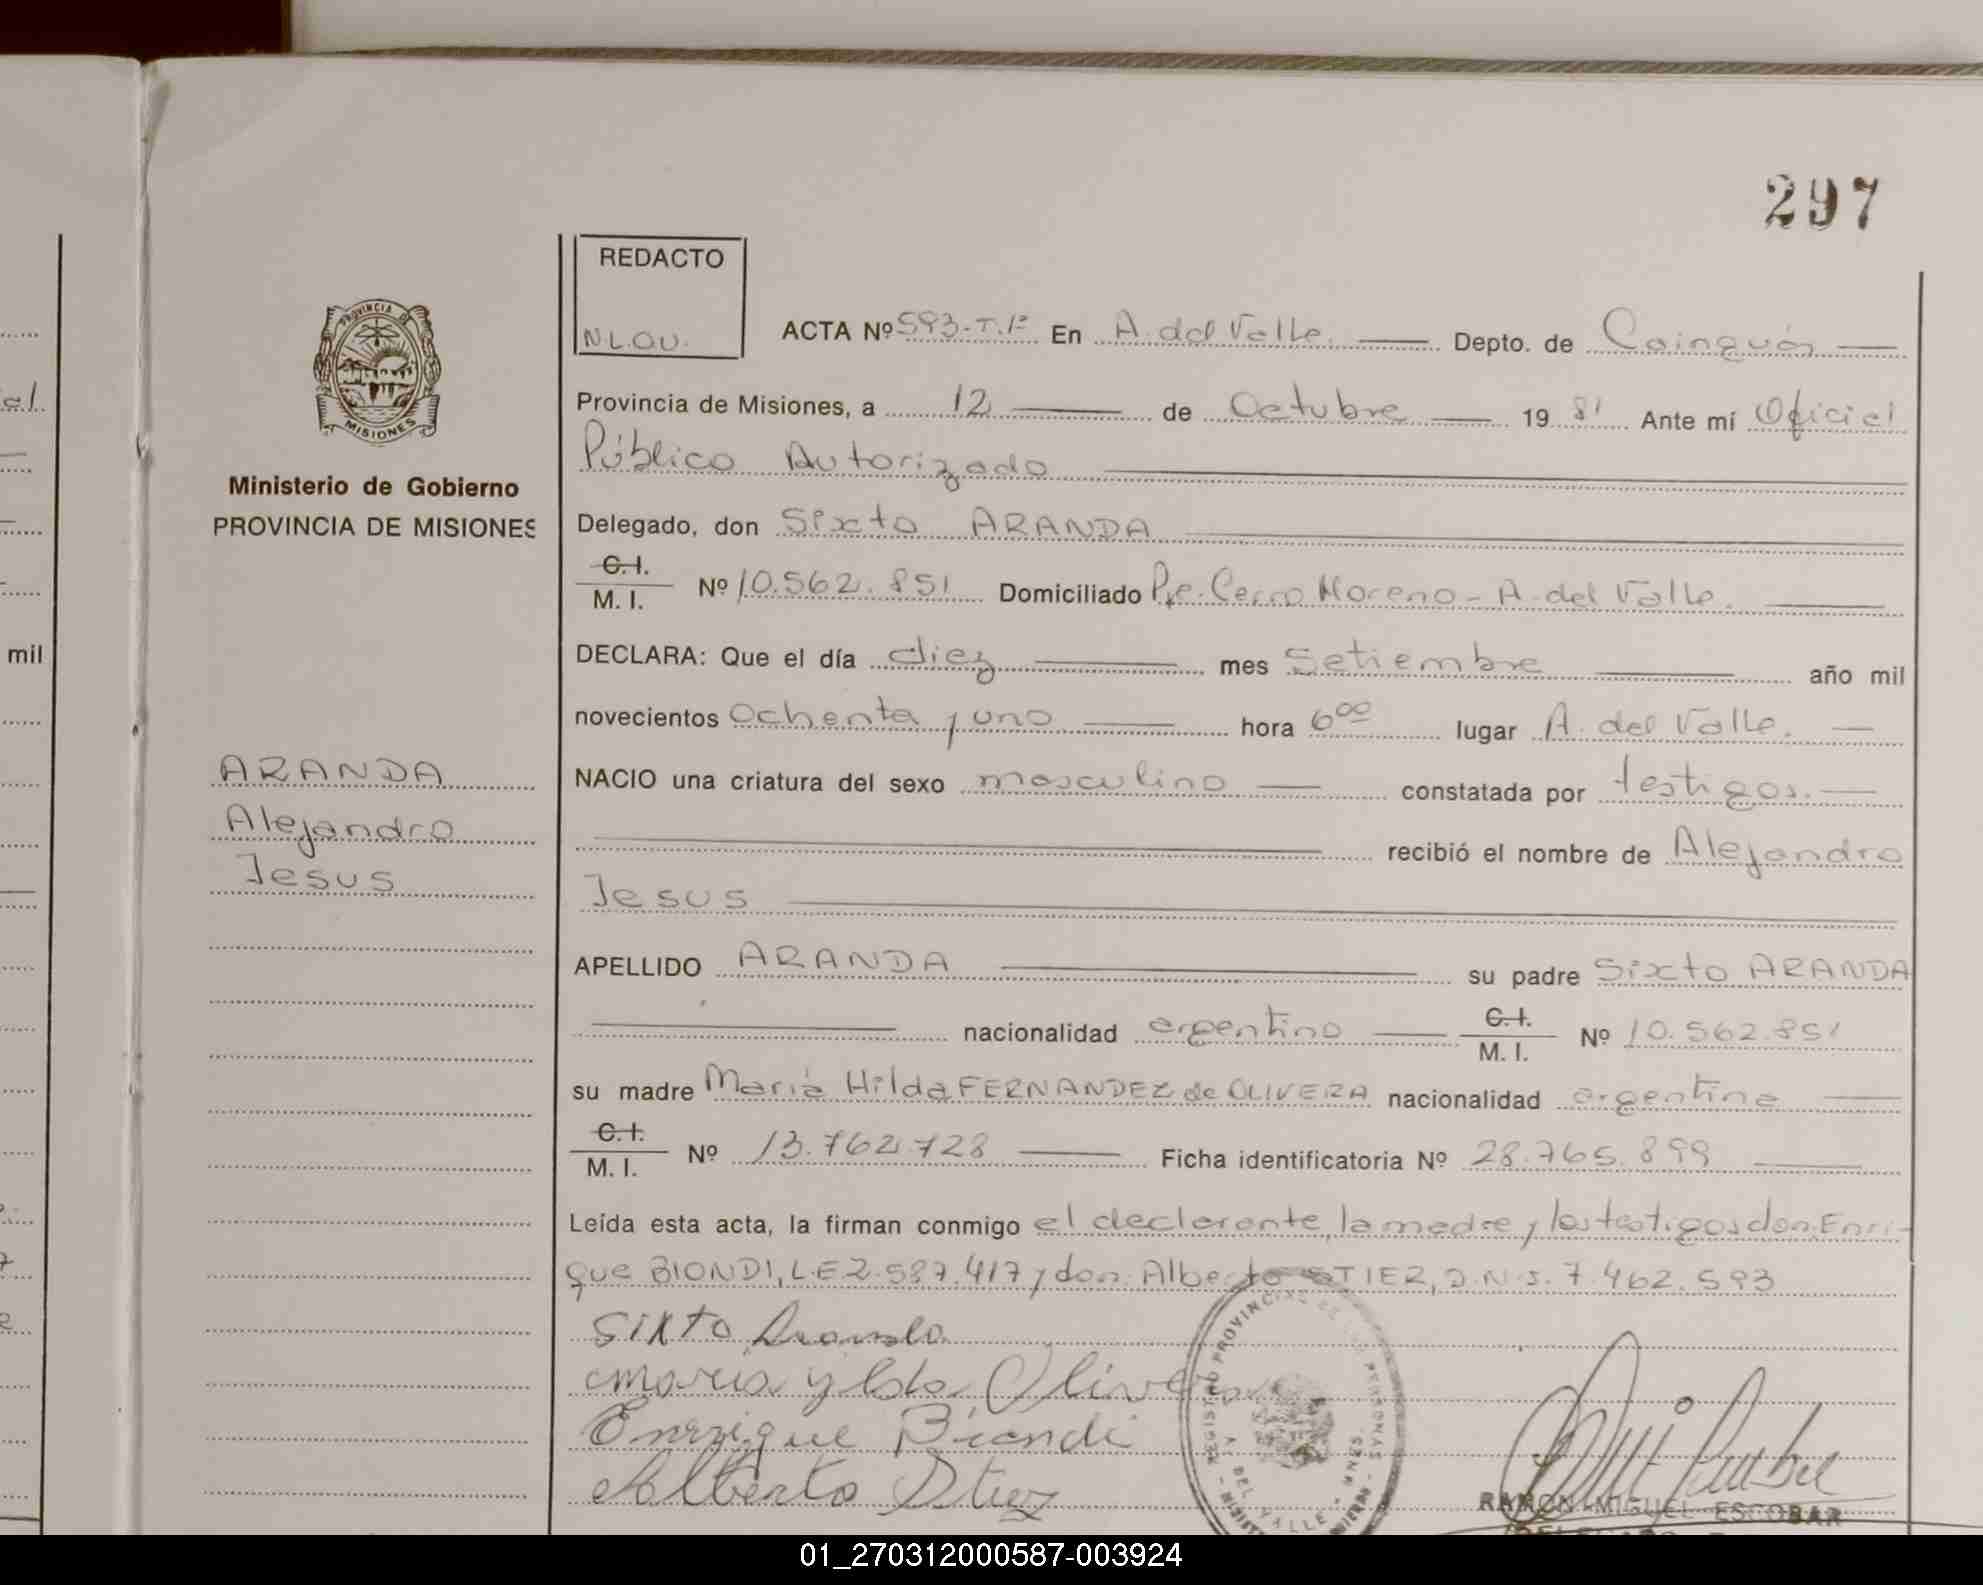 297
REDACTO
N.L.O.V.
ACTA Nº 593-T.1º En A. del Valle. Depto. de Cainguás
Provincia de Misiones, a 12 de Octubre 1981 Ante mí Oficial
Público Autorizado
Delegado, don Sixto ARANDA
C.I.
M. I. Nº 10.562.851 Domiciliado Pje. Cerro Moreno - A. del Valle.
DECLARA: Que el día diez mes Setiembre año mil
novecientos ochenta y uno hora 6⁰⁰ lugar A. del Valle.
NACIO una criatura del sexo masculino constatada por testigos.
recibió el nombre de Alejandro
Jesus
APELLIDO ARANDA su padre Sixto ARANDA
nacionalidad argentino C.I.
M. I. Nº 10.562.851
su madre María Hilda FERNANDEZ de OLIVERA nacionalidad argentina
C.I.
M. I. Nº 13.762.728 Ficha identificatoria Nº 28.765.899
Leída esta acta, la firman conmigo el declarante, la madre y los testigos don: Enri-
que BIONDI, L.E 2.587.417 y don: Alberto STIER, D.N.I. 7.462.593
Sixto Aranda
maria ylda Olivera
Enrrique Biondi
Alberto Stier
RAMON MIGUEL ESCOBAR
PROVINCIA DE
MISIONES
Ministerio de Gobierno
PROVINCIA DE MISIONES
ARANDA
Alejandro
Jesus
mil
01_270312000587-003924